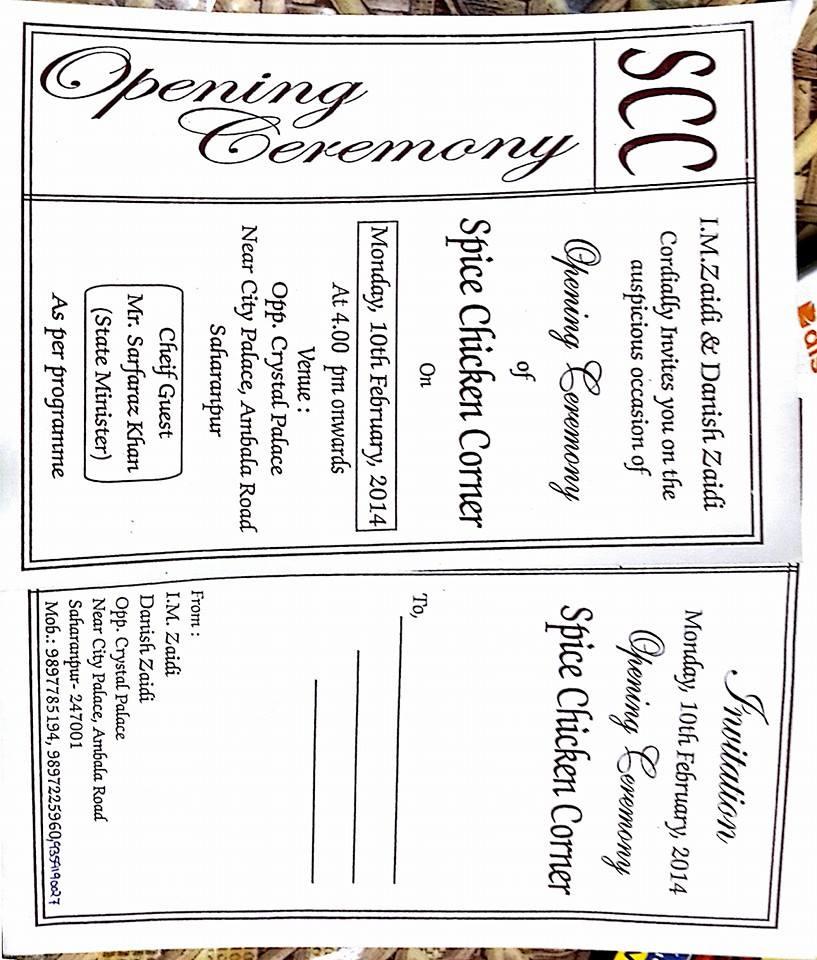 SCC
Opening
Ceremony
I.M.Zaidi & Danish Zaidi
Cordially Invites you on the
auspicious occasion of
Opening Ceremony
of
Spice Chicken Corner
On
Monday, 10th February, 2014
At 4.00 pm onwards
Venue :
Opp. Crystal Palace
Near City Palace, Ambala Road
Saharanpur
Cheif Guest
Mr. Sarfaraz Khan
(State Minister)
As per programme
Invitation
Monday, 10th February, 2014
Opening Ceremony
Spice Chicken Corner
To,
From :
I.M. Zaidi
Danish Zaidi
Opp. Crystal Palace
Near City Palace, Ambala Road
Saharanpur- 247001
Mob.: 9897785194, 9897225960,